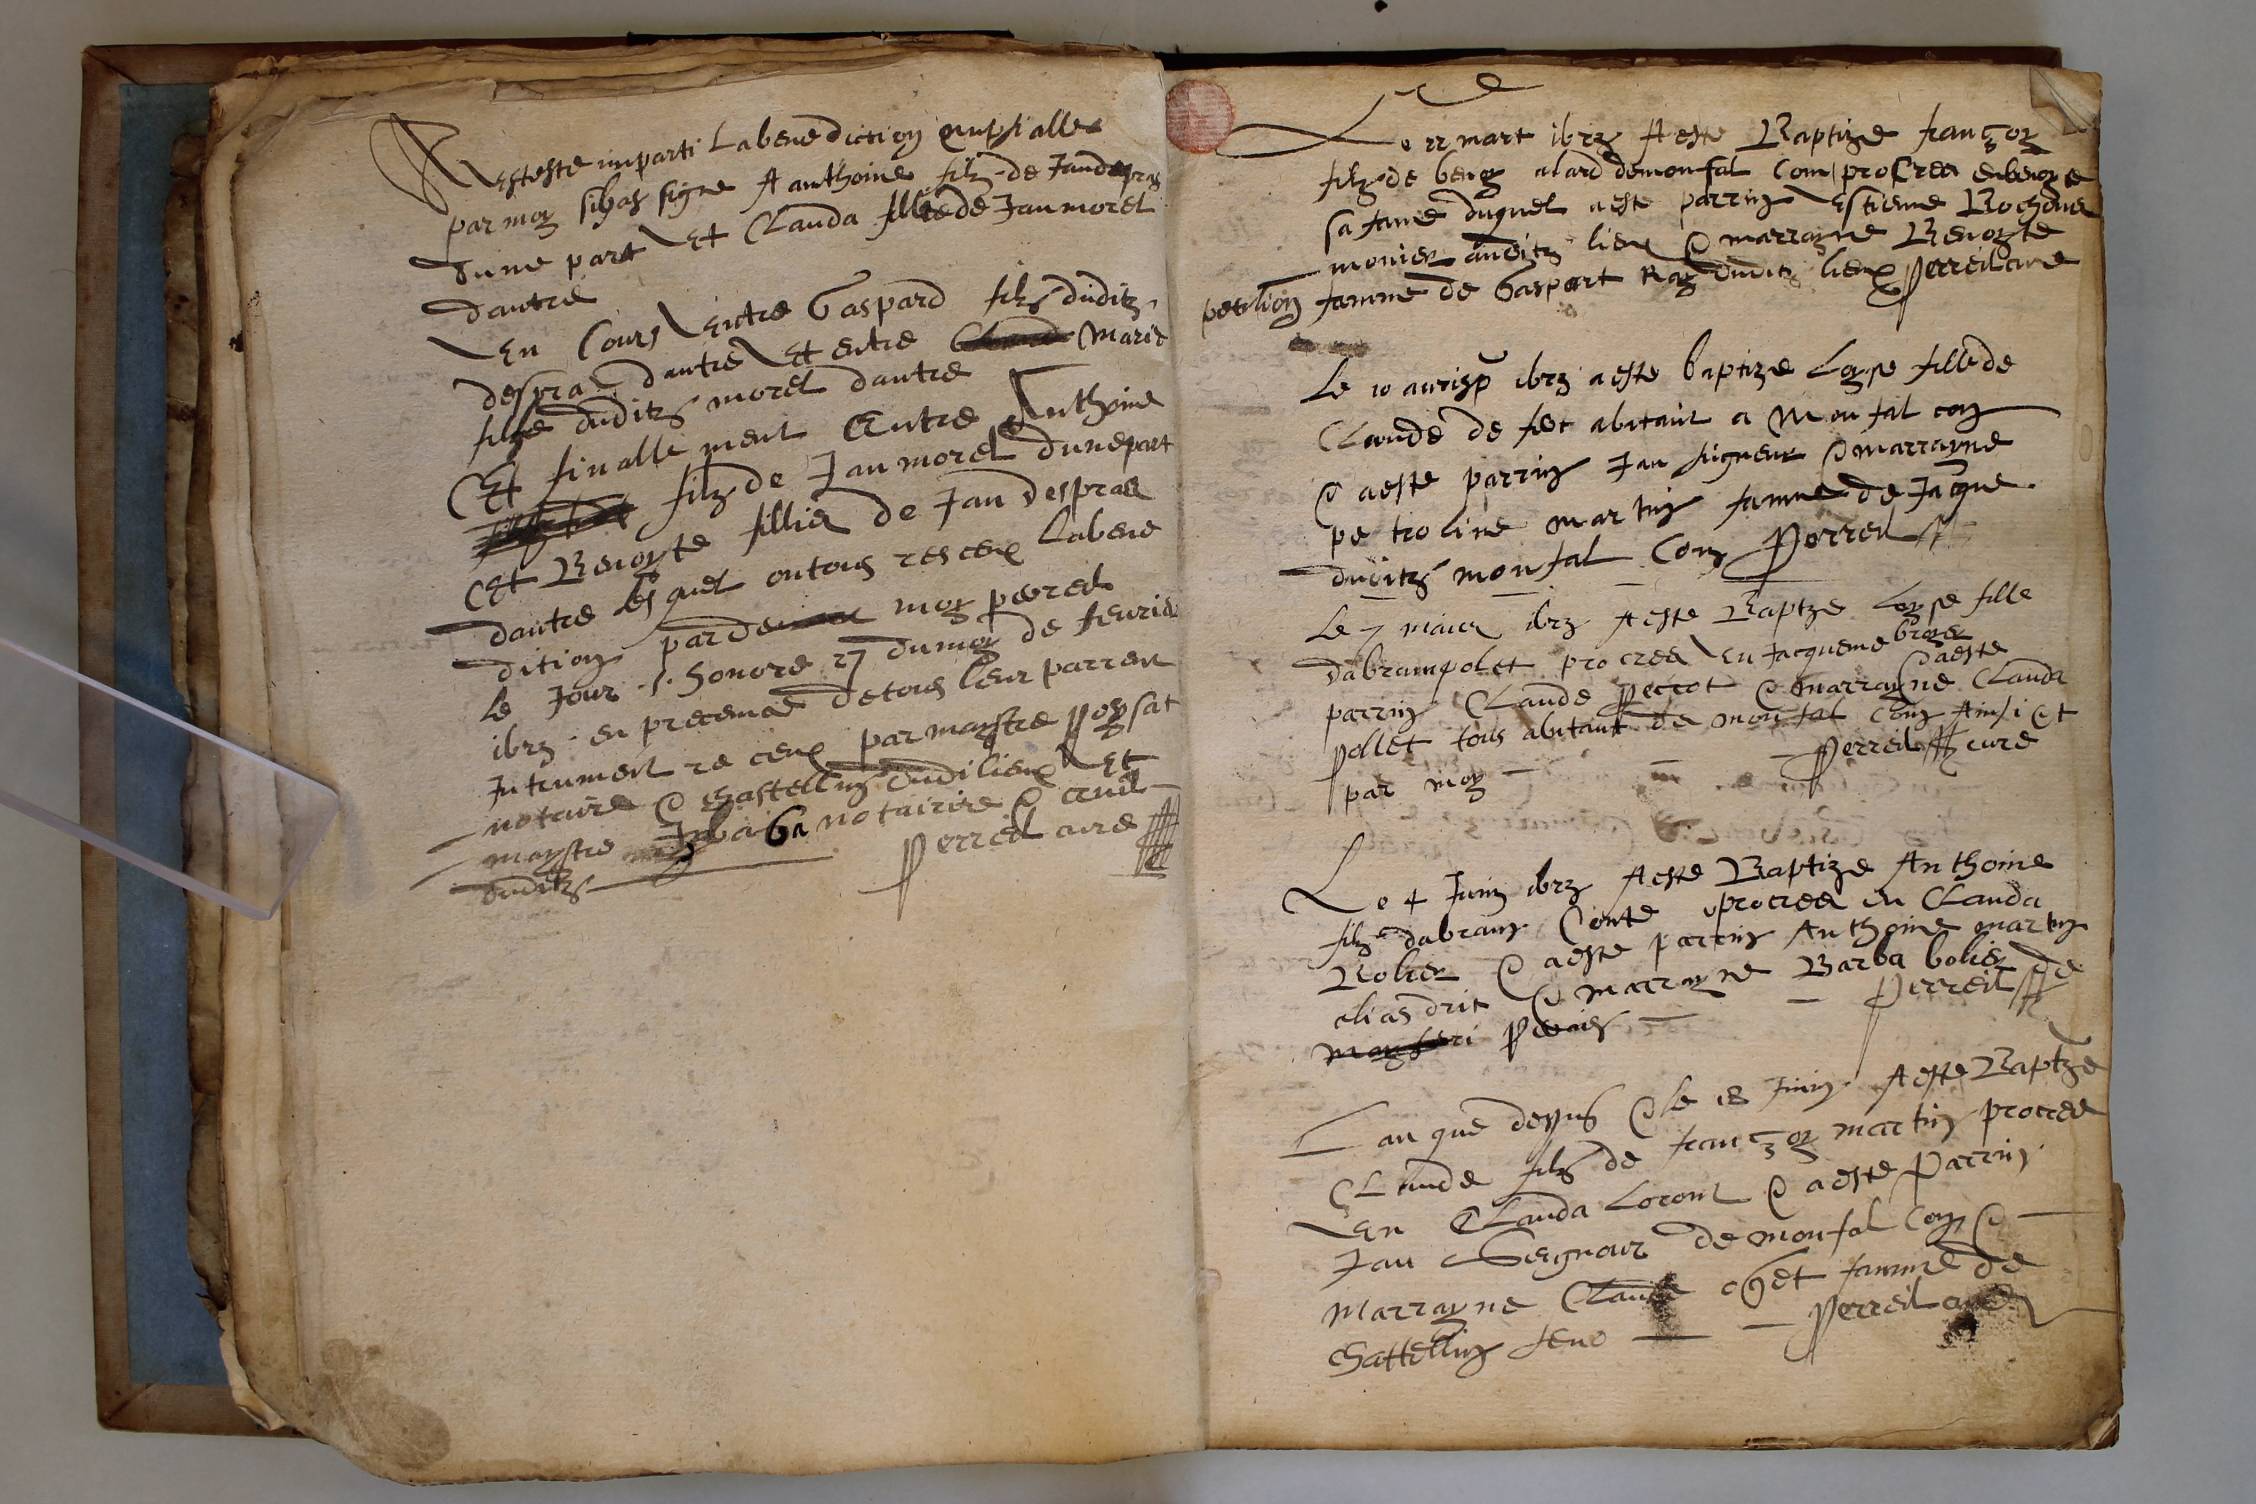 A esteste imparti Labenediction nuptialle
par moy sibas signe A anthoine filz de Jandepras
dune part Et Clauda fillede Jan morel
dautre
En Cours Entre Gaspard filz duditz
despra dautre Et entre Marie
fille duditz morel dautre
Et finallement Entre Anthoine
filz de Jan morel dunepart
Et Benoyte fillie de Jan despras
dautre lesquel ontous resceu Labene
dition parde moy perreil
le Jour s. honore 27 dumoy de feurie
ibrz en presence detous leur parren
Intrument re ceu par maystre poysat
notaire & chastellin dudilieu Et
maystre notairire &
duditz perreil cure
Le 22 mart ibrz A este Baptize françoy
filz de benoy alard demonfal Com procrea enbenoyte
sa fame duquel aeste parrin Estienne Rochone
monier auditz lieu & marrayne Benoyte
petition famme de Gaspart Ray duditz lieu perreilcure
Le 10 aurisp ibrz aeste baptize Loyse fillede
Claude de fet abitant a Monfal com
& aeste parrin Jan signeur & marrayne
petroline martin famme de Jacque
duditz monfal Com perreil
Le 7 maier ibrz Aeste Baptze Loyse fille
dabrampolet procrea En Jacqueme broyer
& aeste
parrin Claude perrot & marrayne Clauda
pollet tous abitant de monfal Com Ainsi Et
par moy perreil cure
Le 4 Juin ibrz Aeste Baptize Anthoine
filz dabram Conte procrea en Clauda
Rolier & aeste parrin Anthoine martin
alias drit & marrayne Barba bolier de
perreil
Lan que dessus & le 18 Juin Aeste Baptze
Claude filz de françoy martin procrea
En Clauda Loront & aeste parrin
Jan Seignour de monfal Com &
marrayne Claude famme de
Chattellin feno perreil